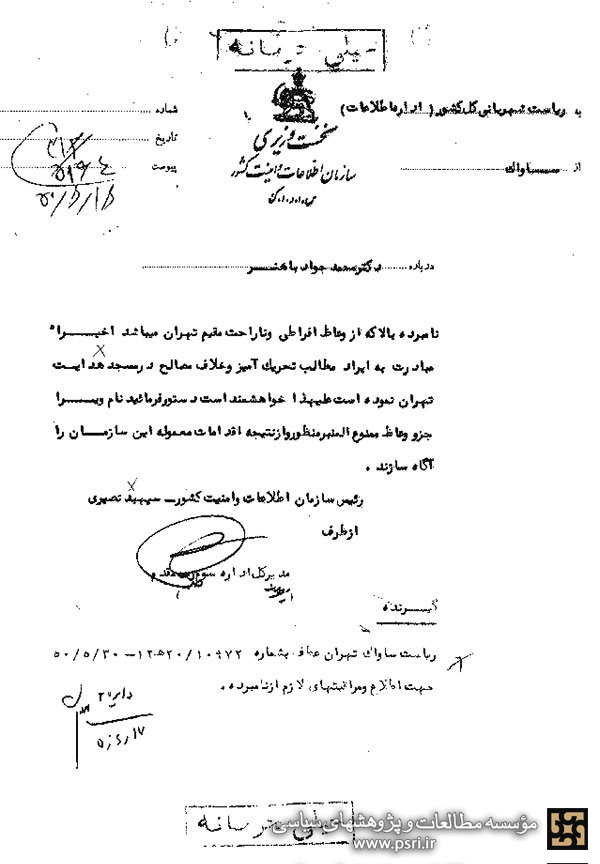 خیلی محرمانه
به ریاست شهربانی کل کشور ( اداره اطلاعات )
شماره
نخست وزیری
تاریخ
سازمان اطلاعات و امنیت کشور
از ساواک
پیوست
س.ا.و.ا.ک
درباره دکتر محمد جواد باهنر
نامبرده بالا که از وعاظ افراطی و ناراحت مقیم تهران میباشد اخیراً
مبادرت به ایراد مطالب تحریک آمیز و خلاف مصالح در مسجد هدایت
تهران نموده است علیهذا خواهشمند است دستور فرمائید نام ویرا
جزو وعاظ ممنوع المنبر منظور و از نتیجه اقدامات معموله این سازمان را
آگاه سازند .
رئیس سازمان اطلاعات و امنیت کشور - سپهبد نصیری
از طرف
مدیرکل اداره سوم مقدم
گیرنده
ریاست ساواک تهران عطف بشماره ۱۰۹۷۲ / ۲۰ه۱۲ - ۵۰/۵/۳۰
جهت اطلاع و مراقبتهای لازم از نامبرده .
خیلی محرمانه
مؤسسه مطالعات و پژوهشهای سیاسی
www.psri.ir